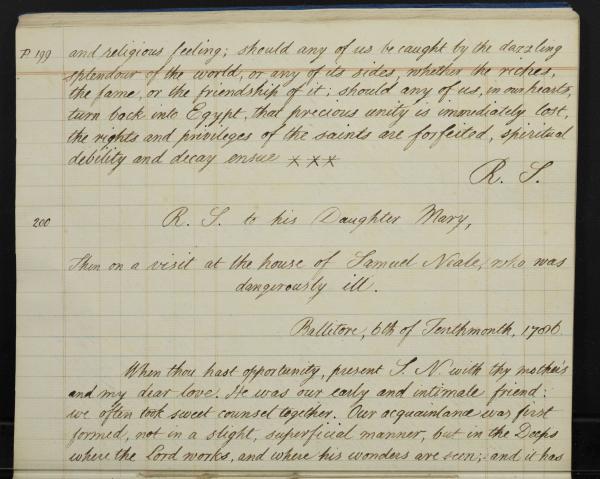 P. 199 and religious feeling; should any of us be caught by the dazzling
splendour of the world, or any of its sides, whether the riches,
the fame, or the friendship of it; should any of us, in our hearts,
turn back into Egypt, that precious unity is immediately lost,
the rights and privileges of the saints are forfeited, spiritual
debility and decay ensue xxx
R. S.
200 R. S. to his Daughter Mary,
Then on a visit at the house of Samuel Neale, who was
dangerously ill.
Ballitore, 6th of Tenthmonth, 1786.
When thou hast opportunity, present S. N. with thy mother's
and my dear love. He was our early and intimate friend:
we often took sweet counsel together. Our acquaintance was first
formed, not in a slight, superficial manner, but in the Deeps
where the Lord works, and where his wonders are seen; and it has